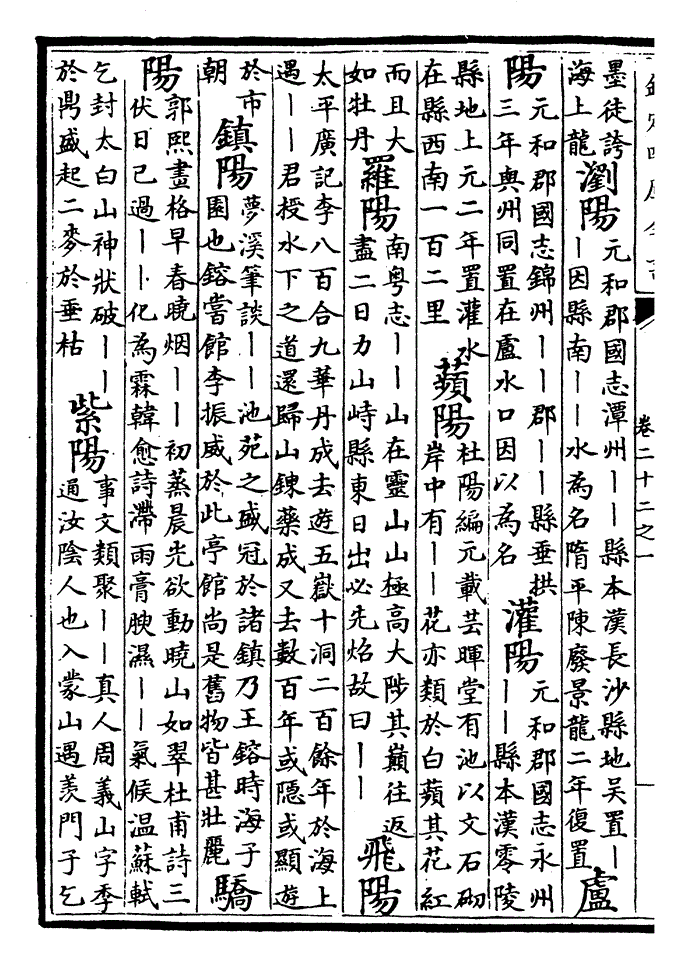 欽定四庫全書
卷二十二之一
墨徒誇
海上龍
瀏陽
元和郡國志潭州——縣本漢長沙縣地吳置—
—因縣南——水為名隋平陳廢景龍二年復置
盧
陽
元和郡國志錦州——郡——縣垂拱
三年與州同置在盧水口因以為名
灌陽
元和郡國志永州
——縣本漢零陵
縣地上元二年置灌水
在縣西南一百二里
蘋陽
杜陽編元載芸暉堂有池以文石砌
岸中有——花亦類於白蘋其花紅
而且大
如牡丹
羅陽
南粤志——山在靈山山極高大陟其巔往返
盡二日力山峙縣東日出必先炤故曰——
飛陽
太平廣記李八百合九華丹成去遊五嶽十洞二百餘年於海上
遇——君授水下之道還歸山錬藥成又去數百年或隱或顯遊
於市
朝
鎮陽
夢溪筆談——池苑之盛冠於諸鎮乃王鎔時海子
園也鎔嘗館李振威於此亭館尚是舊物皆甚壯麗
驕
陽
郭熙畫格早春曉烟——初蒸晨光欲動曉山如翠杜甫詩三
伏日已過——化為霖韓愈詩滯雨膏腴濕——氣候温蘇軾
乞封太白山神狀破——
於鼎盛起二麥於垂枯
紫陽
事文類聚——真人周義山字季
通汝陰人也入蒙山遇羨門子乞